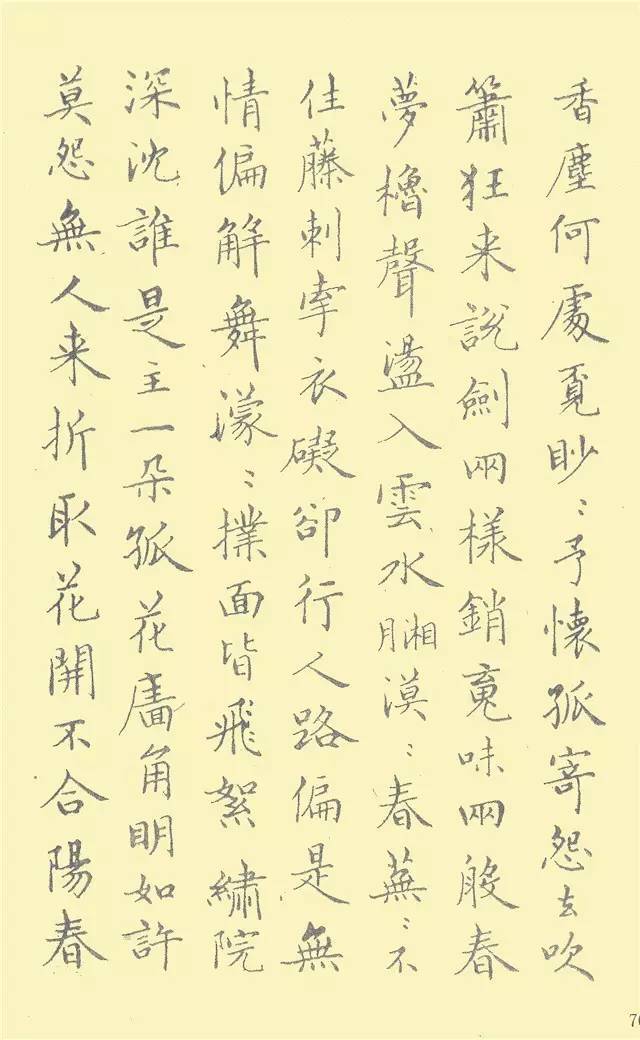 香塵何處覓眇〻予懷孤寄怨去吹
簫狂来說劍兩樣銷䰟味兩般春
夢櫓聲盪入雲水湘月漠〻春蕪〻不
住藤刺牽衣礙卻行人路偏是無
情偏解舞濛〻撲面皆飛絮繡院
深沈誰是主一朵孤花廧角明如許
莫怨無人来折取花開不合陽春